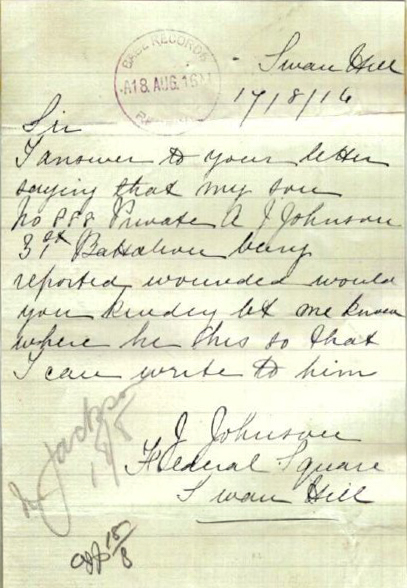 BASE RECORDS
A18 AUG. 16
Swan Hill
17/8/16
Sir
I answer to your letter
saying that my son
No 888 Private A J Johnson
31st Battalion being
reported wounded would
you kindey let me know
where he this so that
I can write to him
J Johnson
Federal Square
Swan Hill
Jackson
18/8
18/8